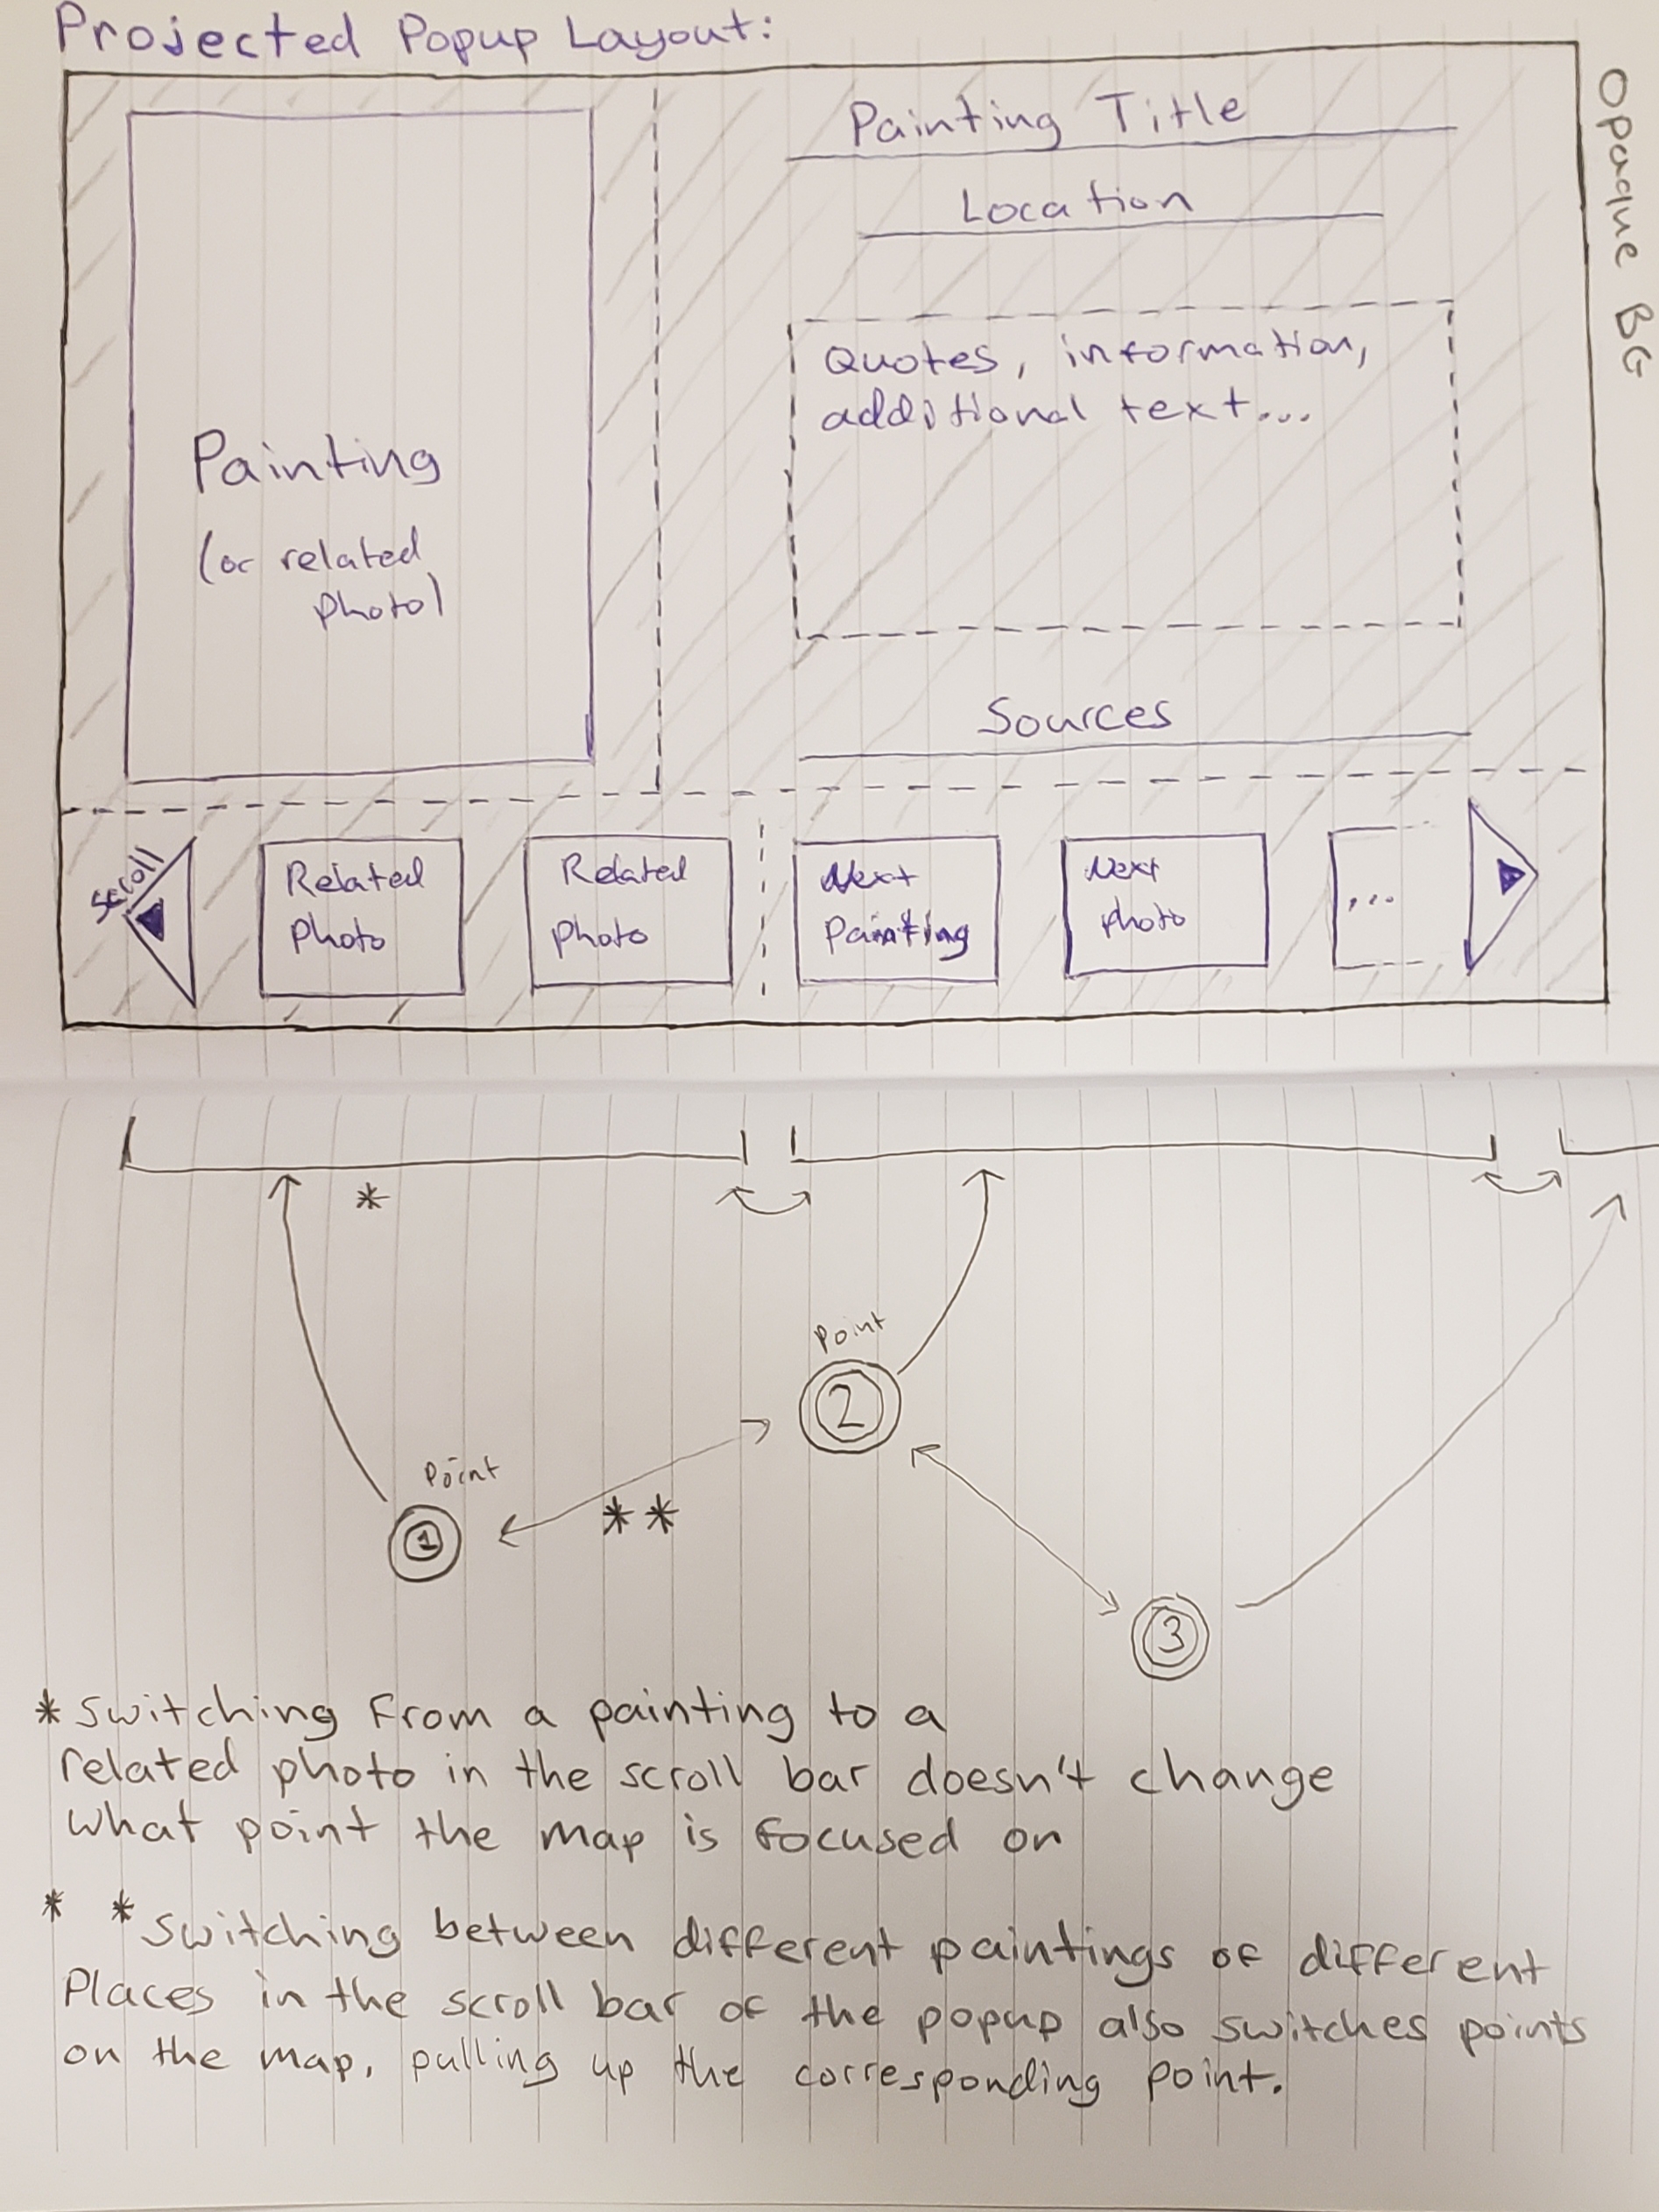 Projected Popup Layout:
Opaque BG
Painting Title
Location
Quotes, information,
additional text...
Painting
(or related
photo)
Sources
Scroll
Related
Photo
Related
photo
Next
Painting
Next
photo
...
*
Point
2
Point
1
**
3
* Switching from a painting to a
related photo in the scroll bar doesn't change
what point the map is focused on
* * Switching between different paintings of different
Places in the scroll bar of the popup also switches points
on the map, pulling up the corresponding point.